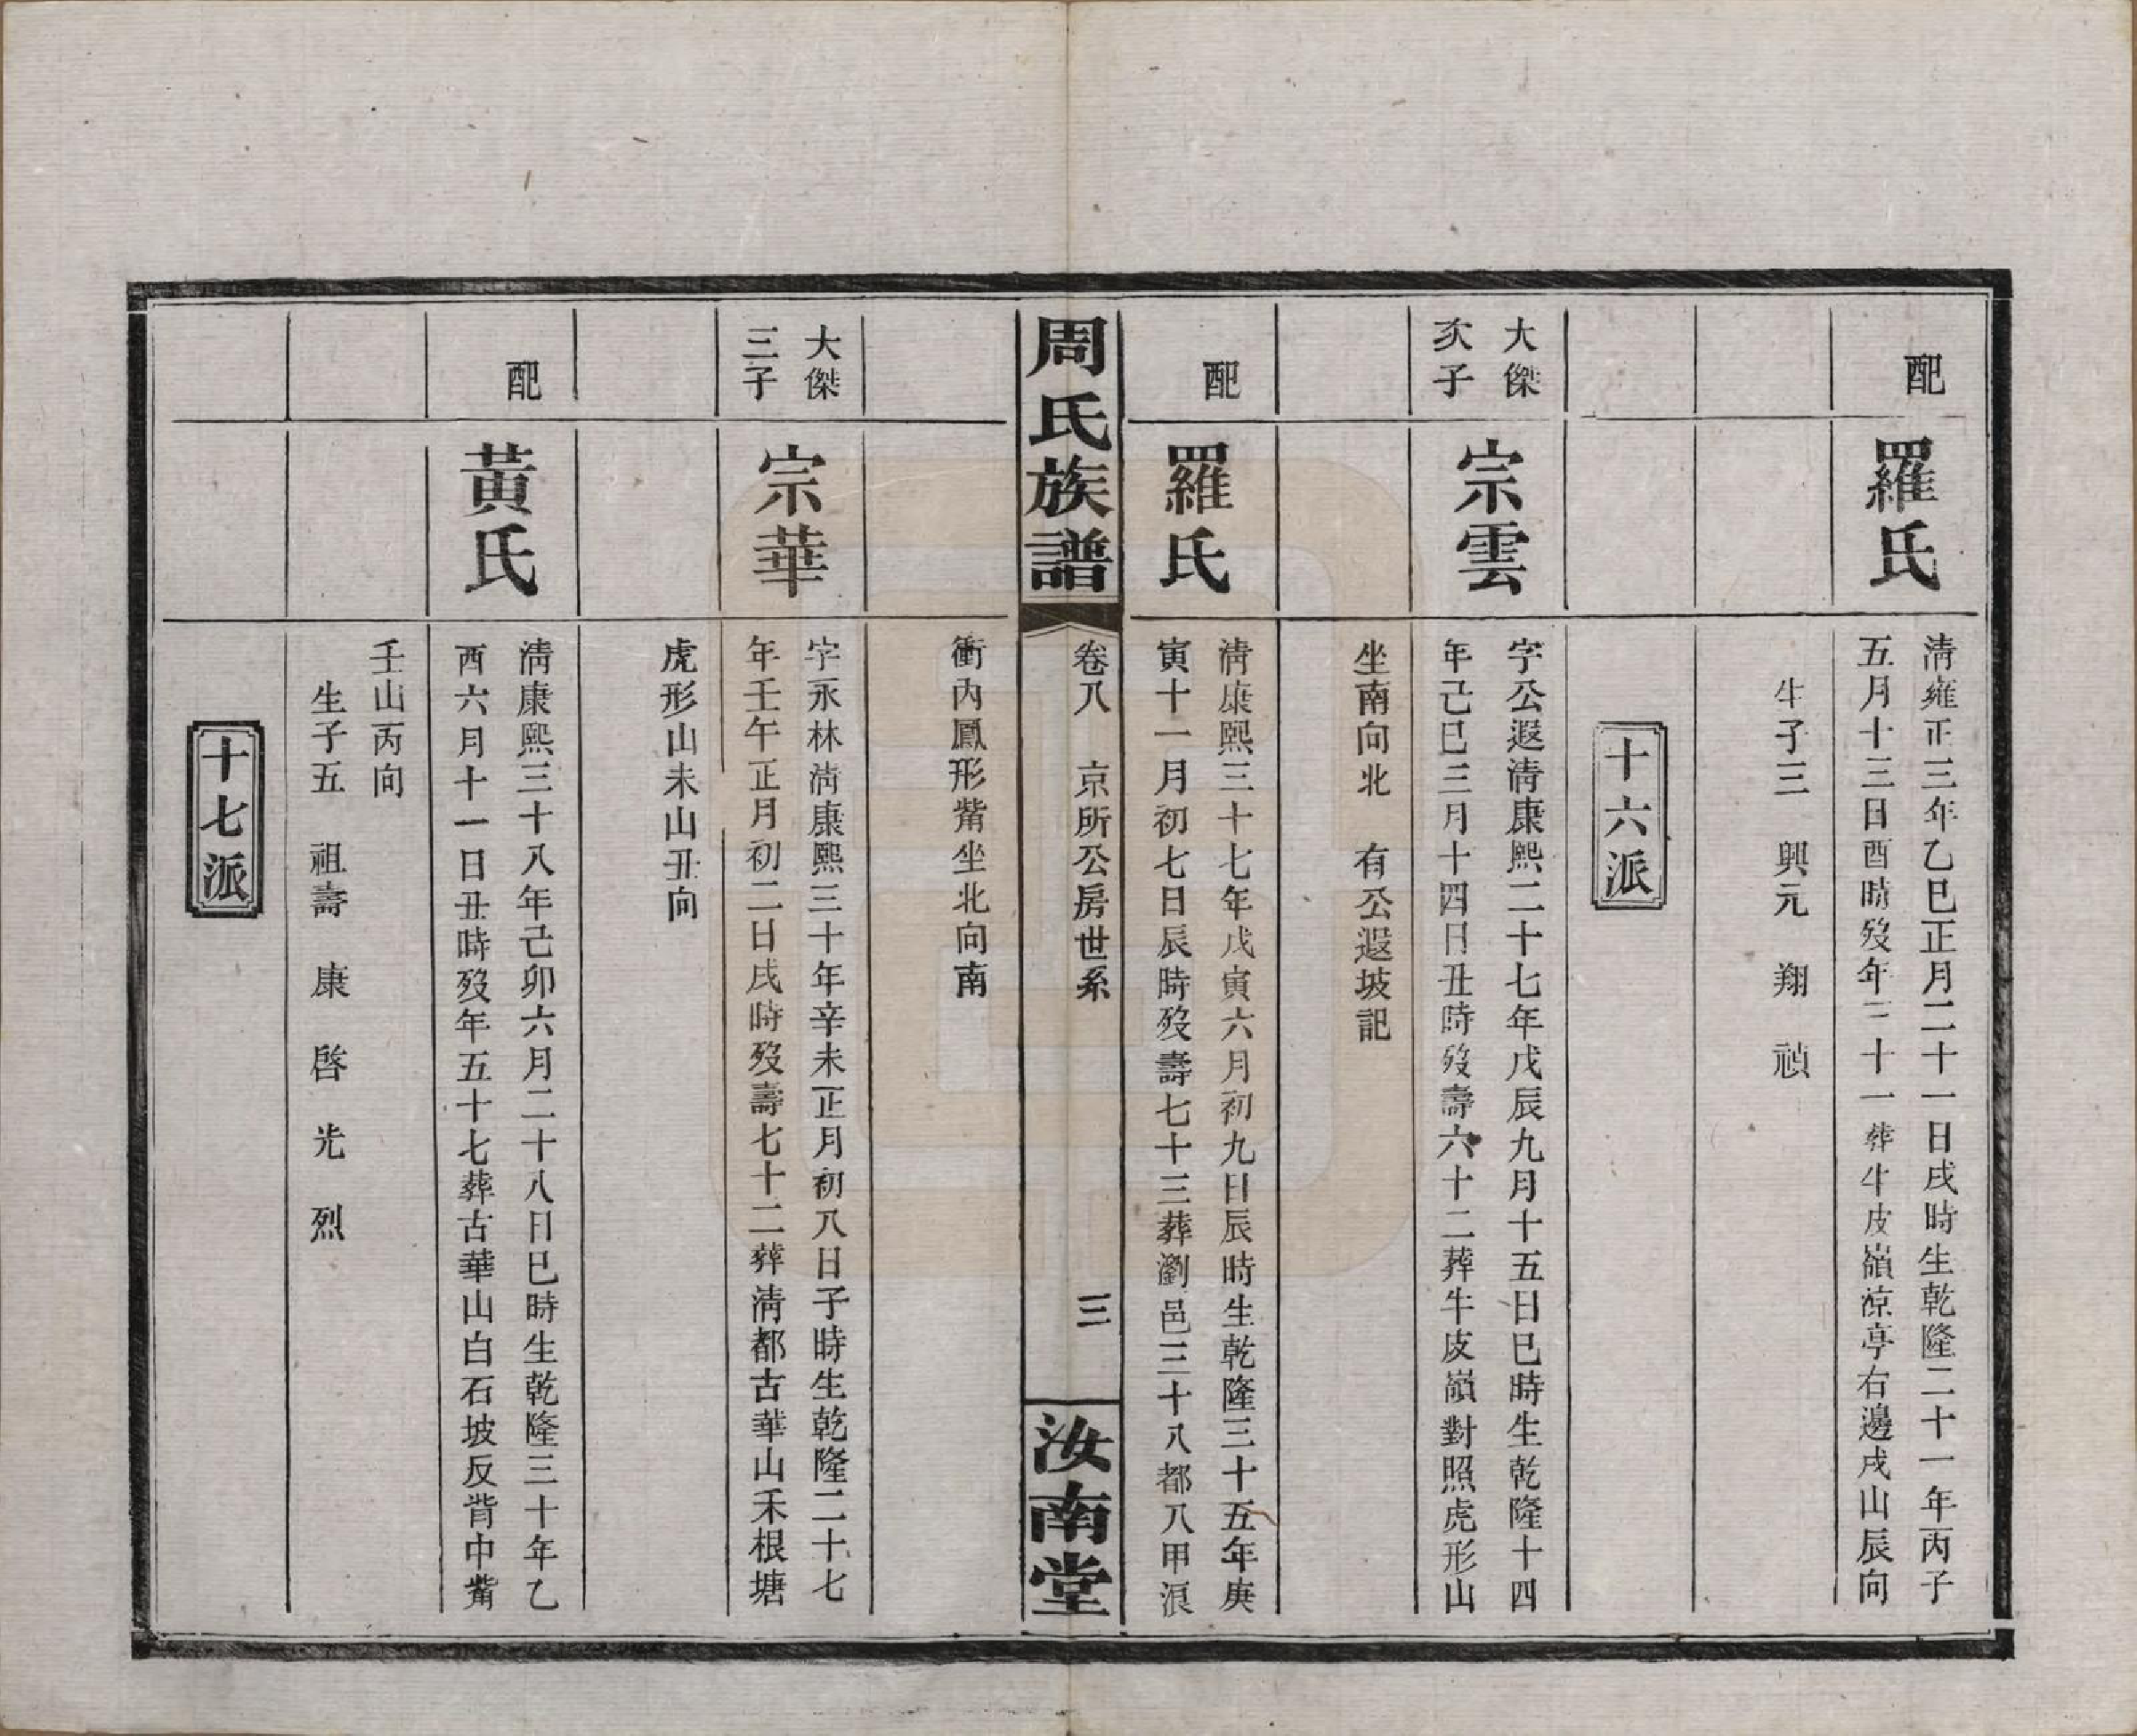 配
羅氏
淸雍正三年乙巳正月二十一日戌時生乾隆二十一年丙子
五月十三日酉時歿年三十一葬牛皮嶺涼亭右邊戌山辰向
生子三　興元　翔　禎
十六派
大傑
次子
宗雲
字公遐淸康熙二十七年戊辰九月十五日巳時生乾隆十四
年己巳三月十四日丑時歿壽六十二葬牛皮嶺對照虎形山
坐南向北　有公遐坡記
配
羅氏
淸康熙三十七年戊寅六月初九日辰時生乾隆三十五年庚
寅十一月初七日辰時歿壽七十三葬瀏邑三十八都八甲浪
周氏族譜
卷八　京所公房世系
三
汝南堂
衝內鳳形觜坐北向南
大傑
三子
宗華
字永林淸康熙三十年辛未正月初八日子時生乾隆二十七
年壬午正月初二日戌時歿壽七十二葬淸都古華山禾根塘
虎形山未山丑向
配
黃氏
淸康熙三十八年己卯六月二十八日巳時生乾隆三十年乙
酉六月十一日丑時歿年五十七葬古華山白石坡反背中觜
壬山丙向
生子五　祖壽　康　啓　光　烈
十七派